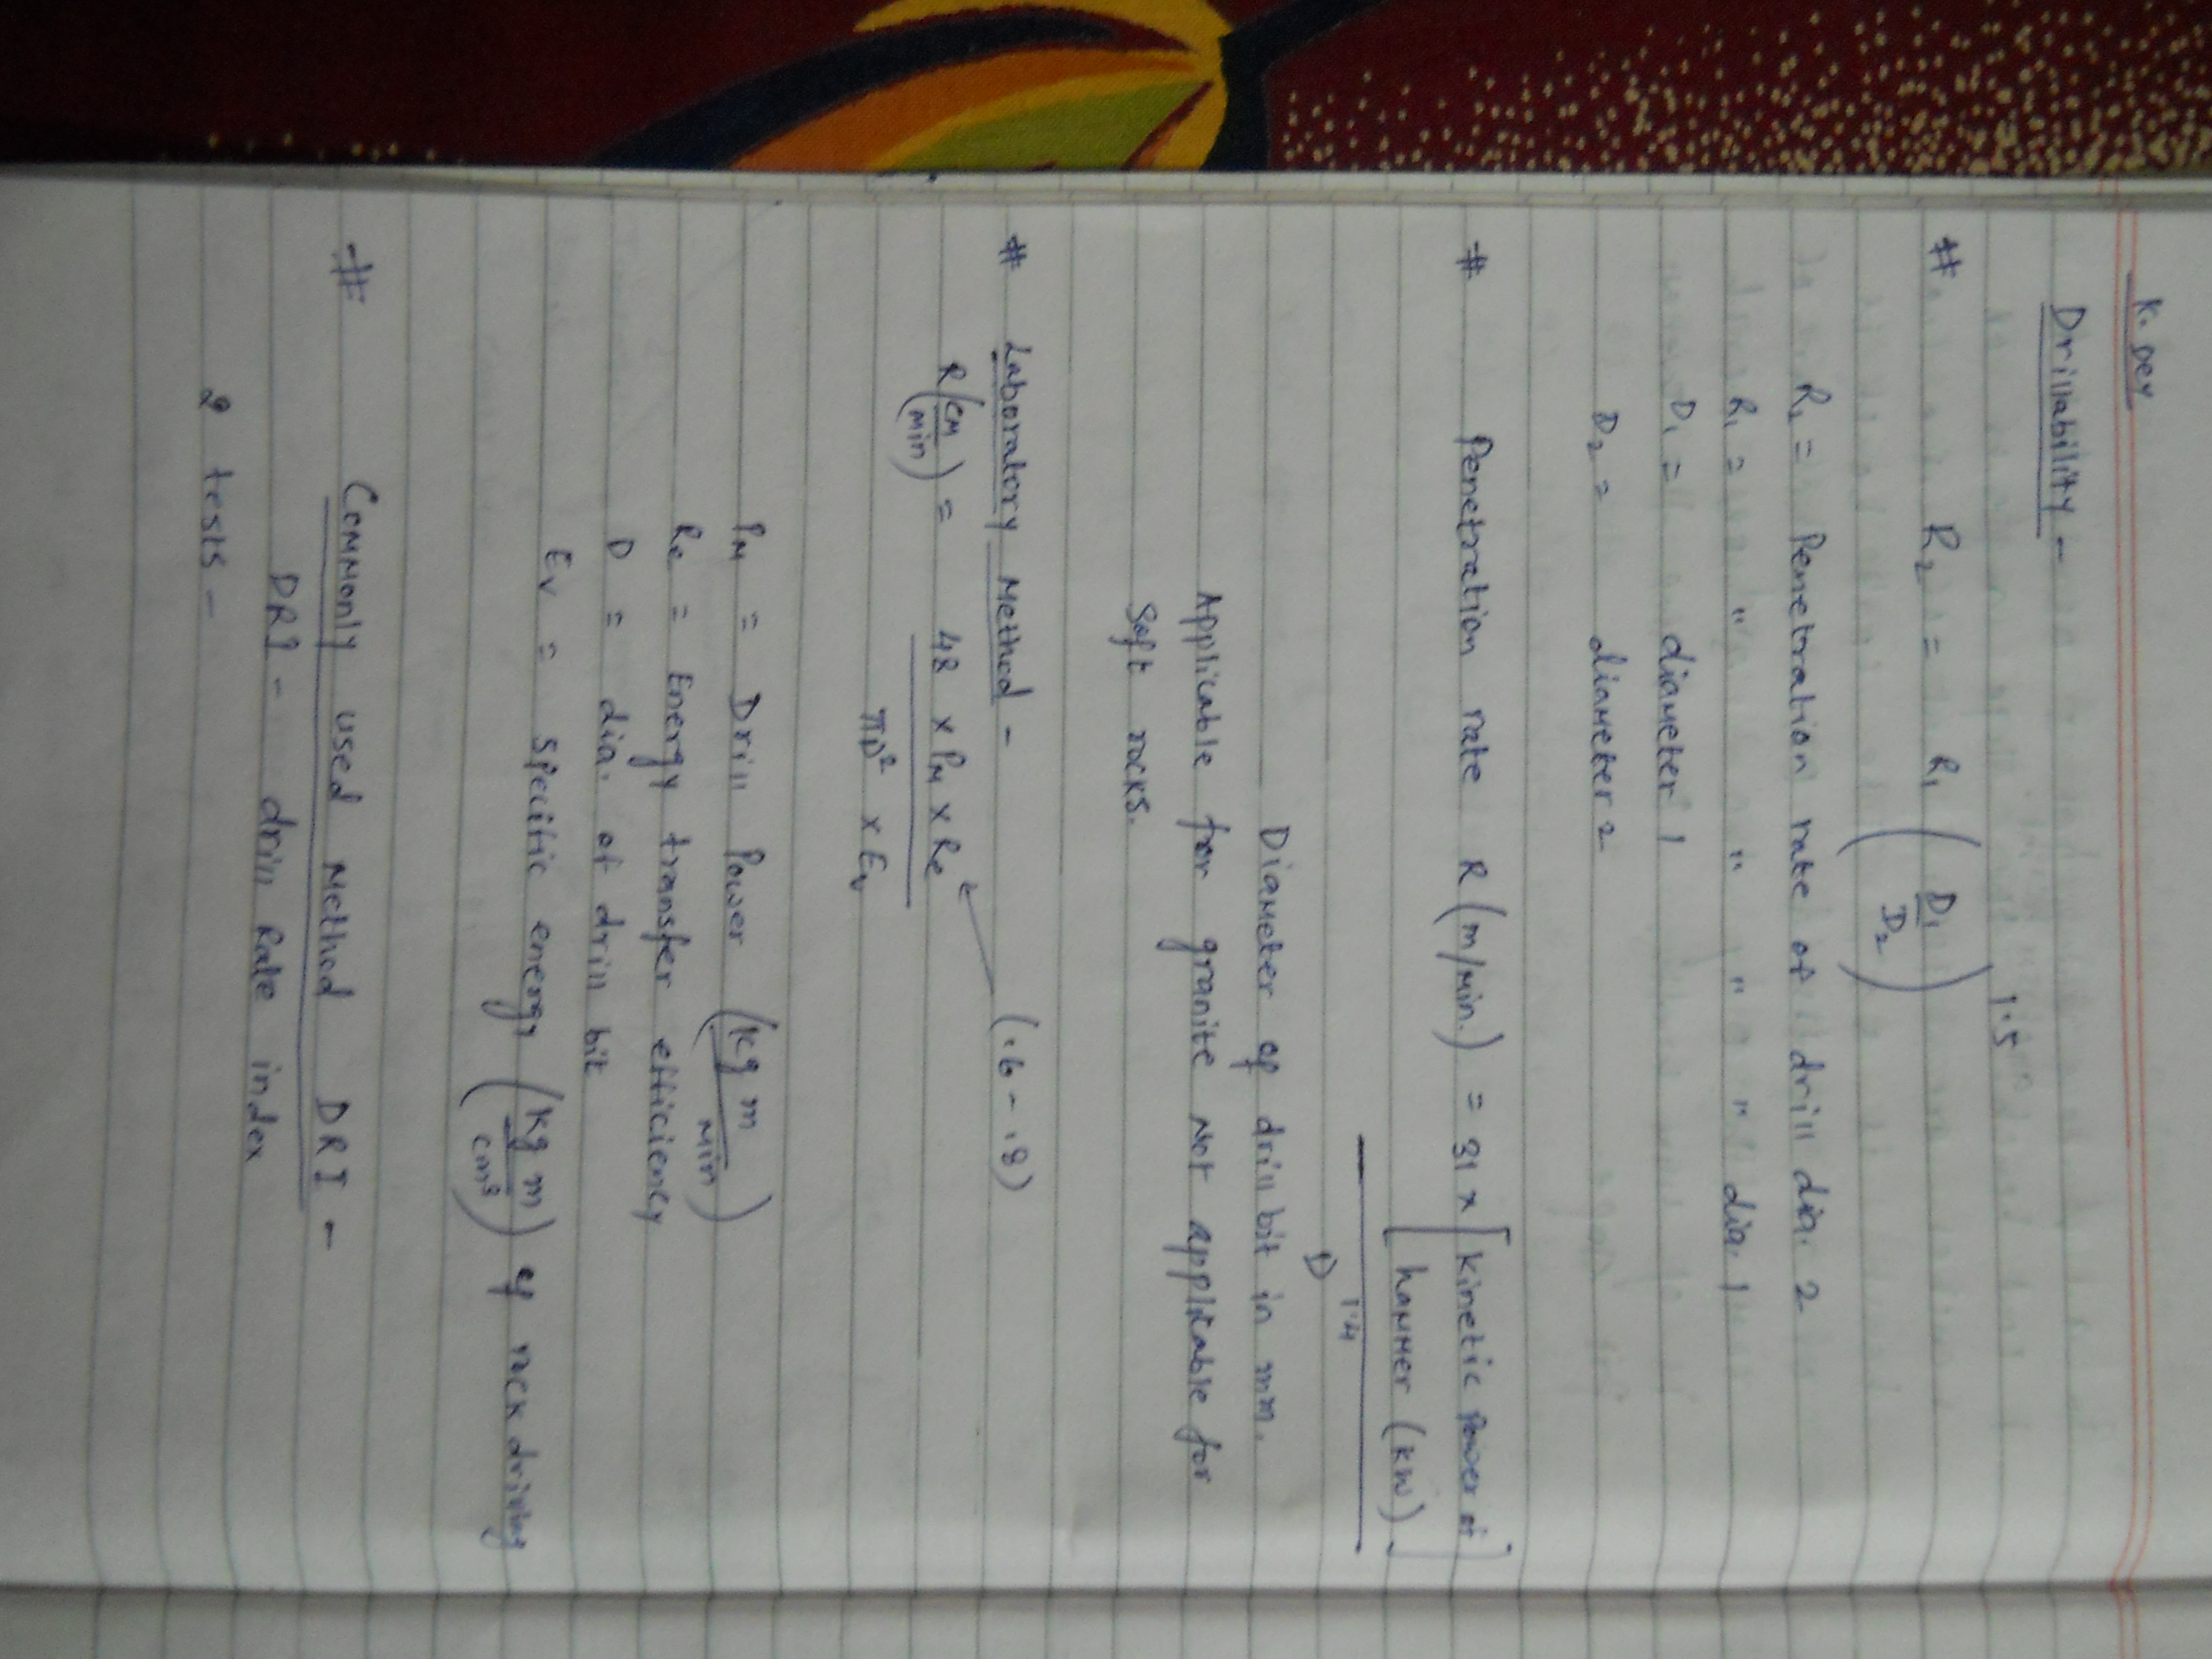 K. Dey
Drillability -
# R₂ = R₁ (D₁/D₂)^1.5
R₂ = Penetration rate of drill dia. 2
R₁ = " " " " dia. 1
D₁ = diameter 1
D₂ = diameter 2
# Penetration rate R (m/min.) = 31 x [Kinetic power of
hammer (kw)]
D^1.4
Diameter of drill bit in mm.
Applicable for granite Not applicable for
Soft rocks.
# Laboratory Method -
(.6 - .8)
R (cm/min) = 48 x Pm x Re
πD² x Ev
Pm = Drill Power (kg m/min)
Re = Energy transfer efficiency
D = dia. of drill bit
Ev = Specific energy (kg m/cm³) of rock driving
# Commonly used Method DRI -
DRI - drill Rate index
2 tests -